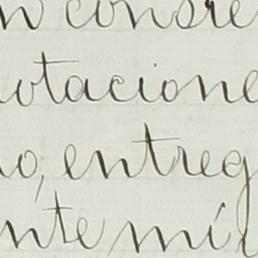 n consre
otacione
o, entreg
nte mil